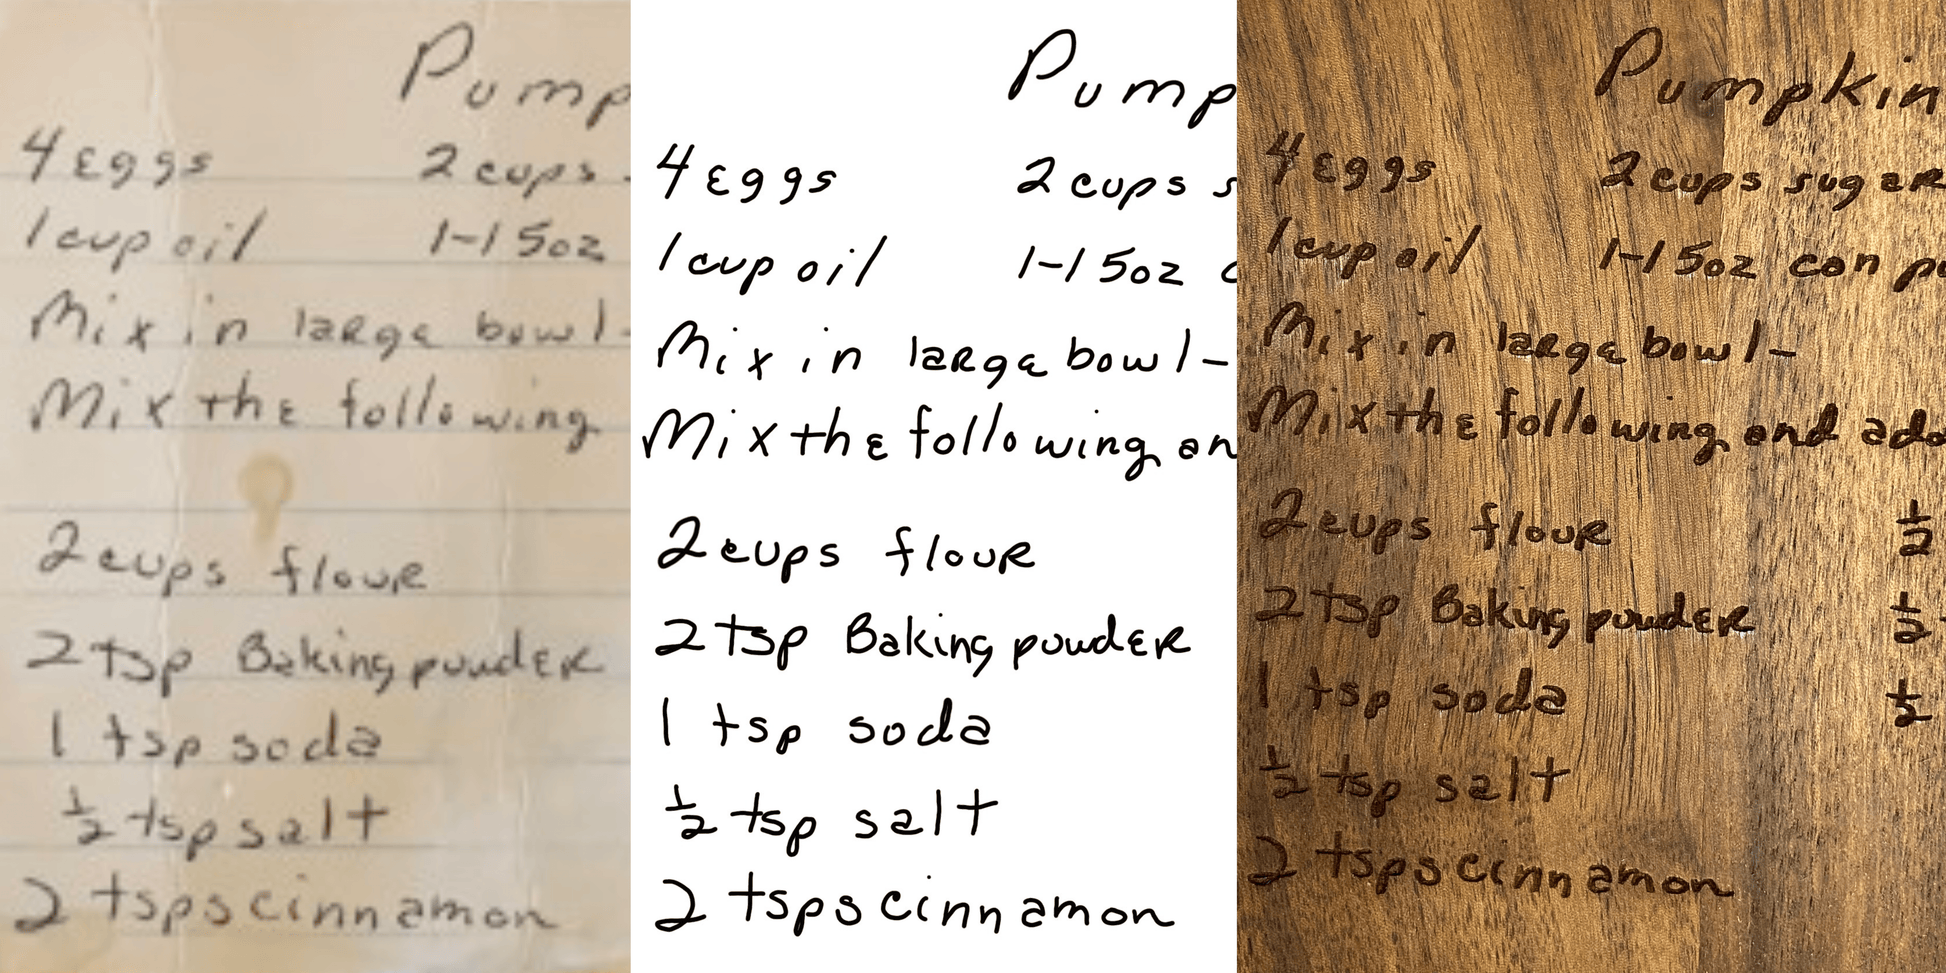 Pump
4 eggs 2 cups
1 cup oil 1-15oz
Mix in large bowl-
Mix the following
2 cups flour
2 tsp Baking powder
1 tsp soda
½ tsp salt
2 tsps cinnamon
Pump
4 eggs 2 cups s
1 cup oil 1-15oz c
Mix in large bowl-
Mix the following an
2 cups flour
2 tsp Baking powder
1 tsp soda
½ tsp salt
2 tsps cinnamon
Pumpkin
4 eggs 2 cups sugar
1 cup oil 1-15oz can pu
Mix in large bowl-
Mix the following and add
2 cups flour ½
2 tsp Baking powder ½
1 tsp soda ½
½ tsp salt
2 tsps cinnamon